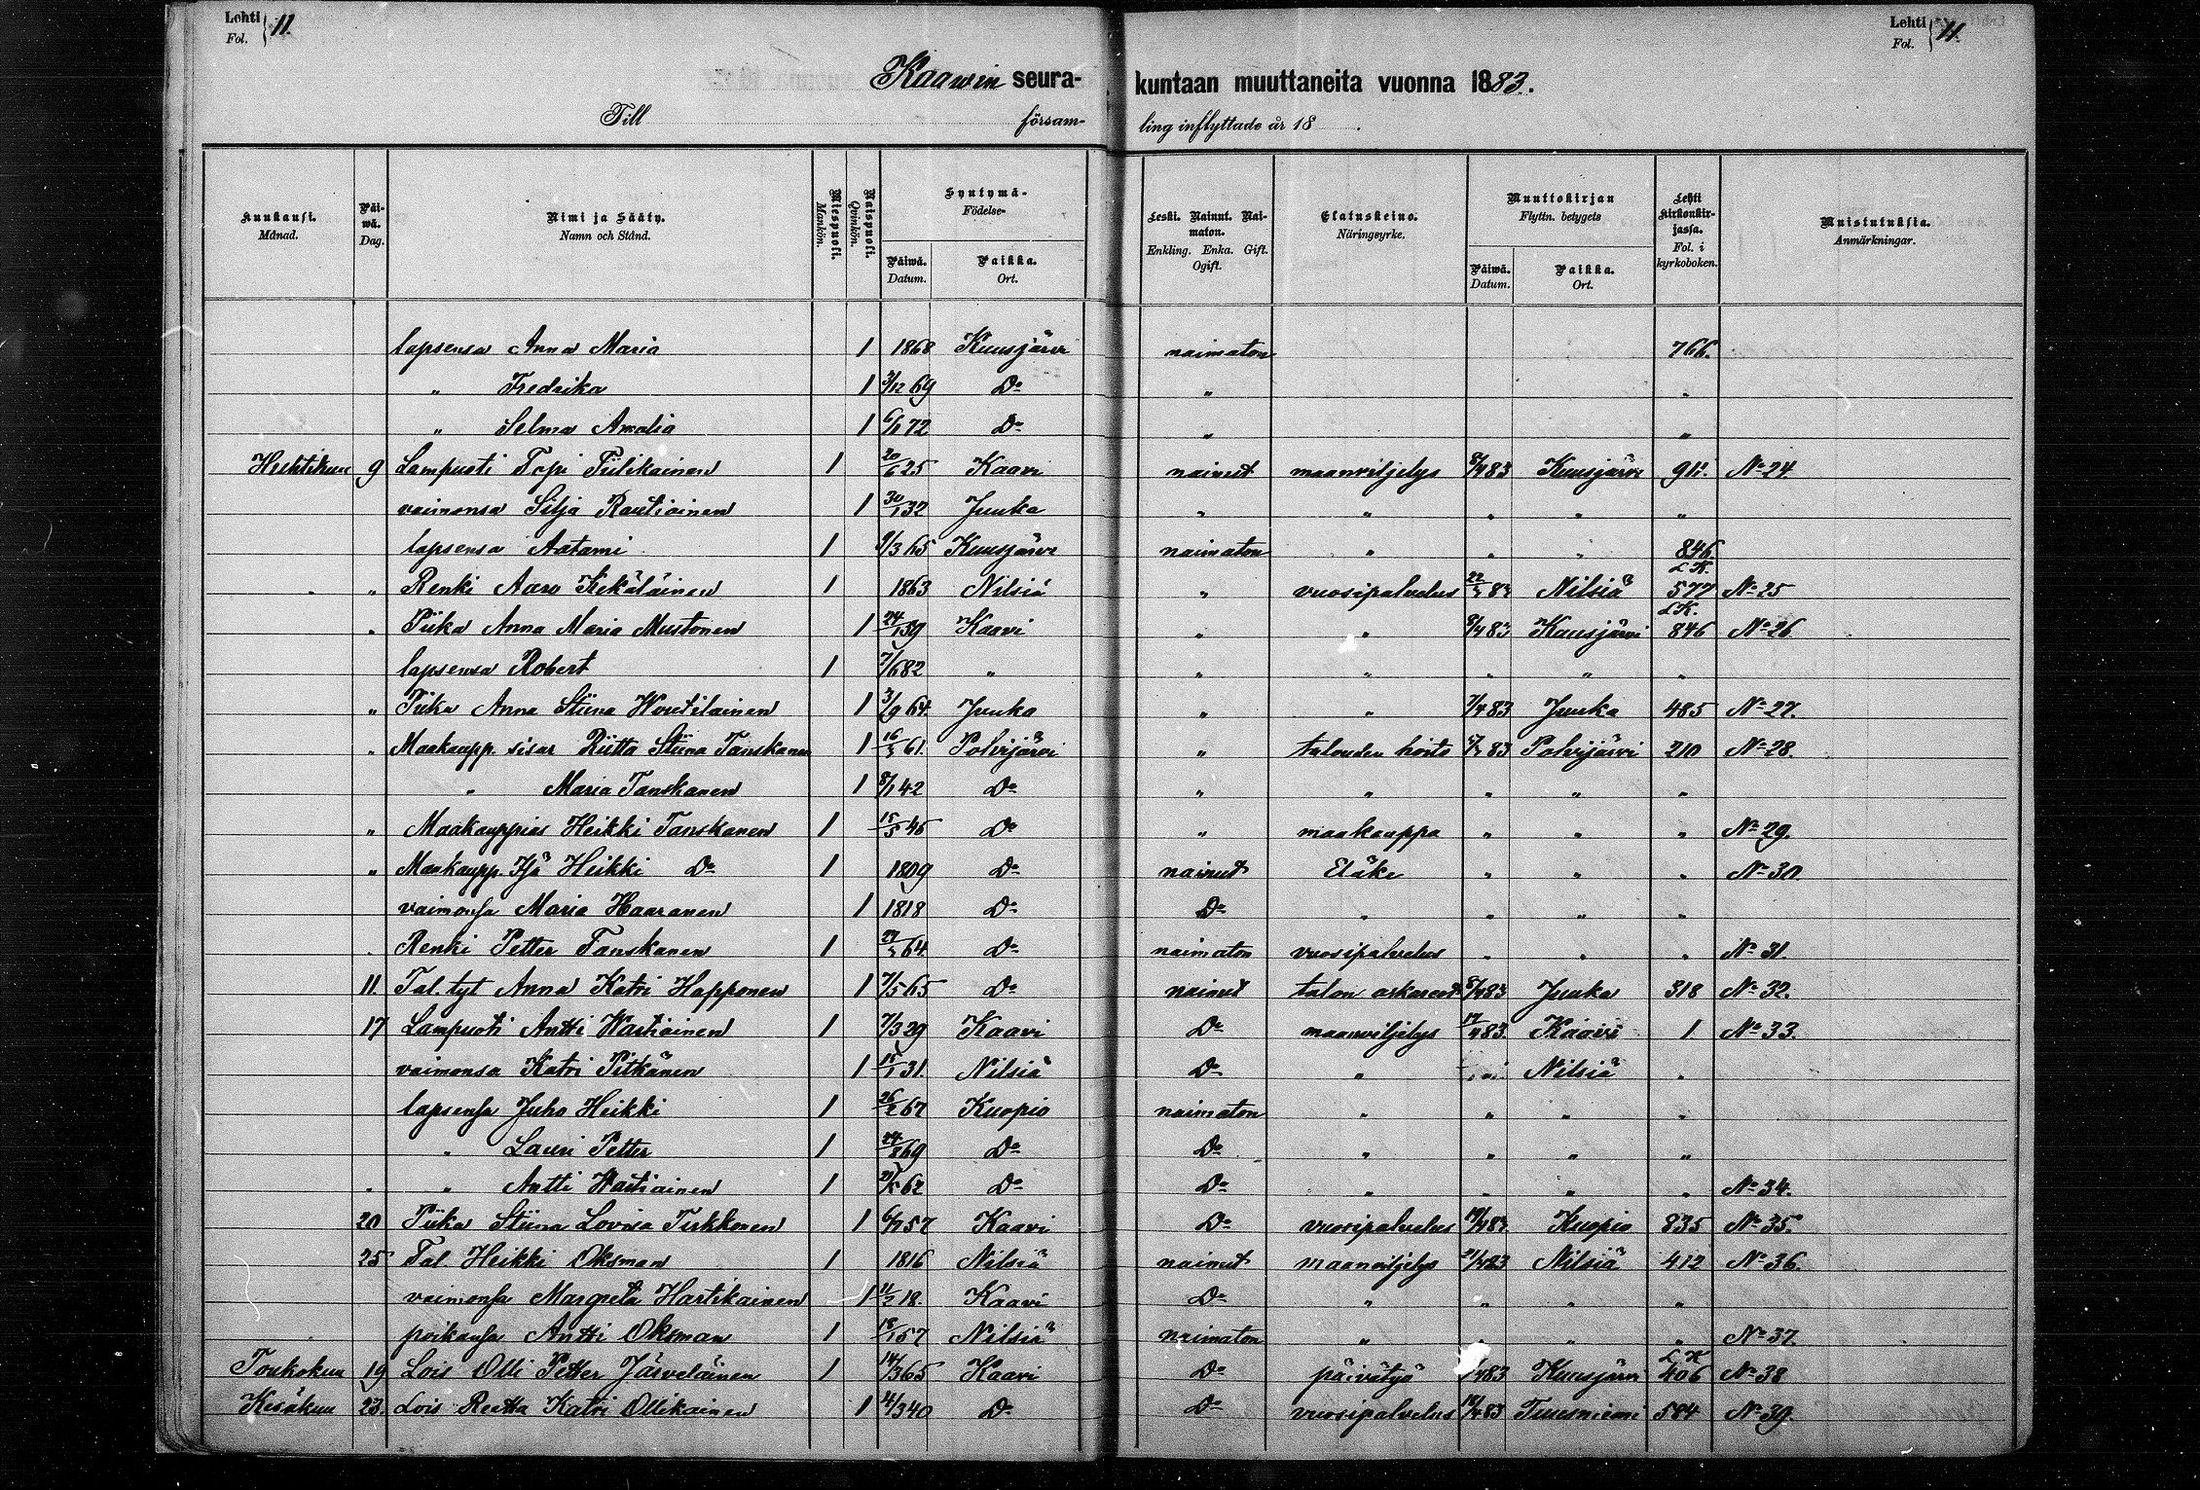 Lehti Fol. } 11. Lehti Fol. } 11.
Kaawin seura- kuntaan muuttaneita vuonna 1883.
Till försam- ling inflyttade år 18 .
Kuukausi. Månad. Päi-wä. Dag. Nimi ja Sääty. Namn och Stånd. Miespuoli. Mankön. Naispuoli. Qvinkön. Syntymä- Födelse- Päiwä. Datum. Paikka. Ort. Leski. Nainut. Nai-maton. Enkling. Enka. Gift. Ogift. Elatuskeino. Näringsyrke. Muuttokirjan Flyttn. betygets Päiwä. Datum. Paikka. Ort. Lehti kirkonkir-jassa. Fol. i kyrkoboken. Muistutuksia. Anmärkningar.
lapsensa Anna Maria 1 1868 Kuusjärvi naimaton 766.
" Fredrika 1 3/12 69 Do "
" Selma Amalia 1 72 Do " "
Huhtikuu 9 Lampuoti Topi Tiilikainen 1 20/6 25 Kaavi nainut maanviljelys 83 Kuusjärvi No 24.
vaimonsa Silja Rautiainen 1 30/1 32 Juuka " " " " "
lapsensa Aatami 1 9/3 65 Kuusjärvi naimaton " " " 846.
" Renki Aaro Kekäläinen 1 1863 Nilsiä " vuosipalvelus Nilsiä LK. 577 No 25
" Piika Anna Maria Mustonen 1 39 Kaavi " " Kuusjärvi LK. 846 No 26
lapsensa Robert 1 7/6 82 " " " " " "
" Piika Anna Stiina Woutilainen 1 3/9 64. Juuka " " 7/4 83 Juuka 485 No 27.
" Maakaupp. sisar Riitta Stiina Tanskanen 1 61. Polvijärvi " talouden hoito 83 Polvijärvi 210 No 28.
" Maria Tanskanen 1 8/1 42 Do " " " " "
" Maakauppias Heikki Tanskanen 1 Do " maakauppa " " " No 29.
" Maakaupp. Isä Heikki Do 1 1809 Do nainut Eläke " " " No 30.
vaimonsa Maria Haaranen 1 1818 Do Do " " " "
" Renki Petter Tanskanen 1 64. Do naimaton vuosipalvelus " " " No 31.
11. Tal. tyt Anna Katri Happonen 1 7/5 65 Do nainut talon Juuka 318 No 32.
17 Lampuoti Antti Wartiainen 1 7/3 29 Kaavi Do maanviljelys 17/4 83. Kaavi 1 No 33.
vaimonsa Katri Pitkänen 1 15/1 31. Nilsiä Do " Nilsiä "
lapsensa Juho Heikki 1 26/2 67 Kuopio naimaton " " " "
" Lauri Petter 1 24/8 69 Do Do " " " "
" " Antti Wartiainen 1 62 Do Do " " " " No 34.
20 Piika Stiina Lovisa Tirkkonen 1 57 Kaavi Do vuosipalvelus Kuopio 835 No 35.
25 Tal. Heikki Oksman 1 1816 Nilsiä nainut maanviljelys 21/4 83 Nilsiä 412 No 36.
vaimonsa Margreta Hartikainen 1 11/2 18. Kaavi Do " " " "
poikansa Antti Oksman 1 18/1 57 Nilsiä naimaton " " " " No 37.
Toukokuu 19 Lois Olli Petter Järveläinen 1 14/3 65 Kaavi Do päivätyö 83 Kuusjärvi LK 406 No 38
Kesäkuu 23. Lois Reetta Katri Ollikainen 1 3 40 Do Do vuosipalvelus 83 Tuusniemi 584 No 39.